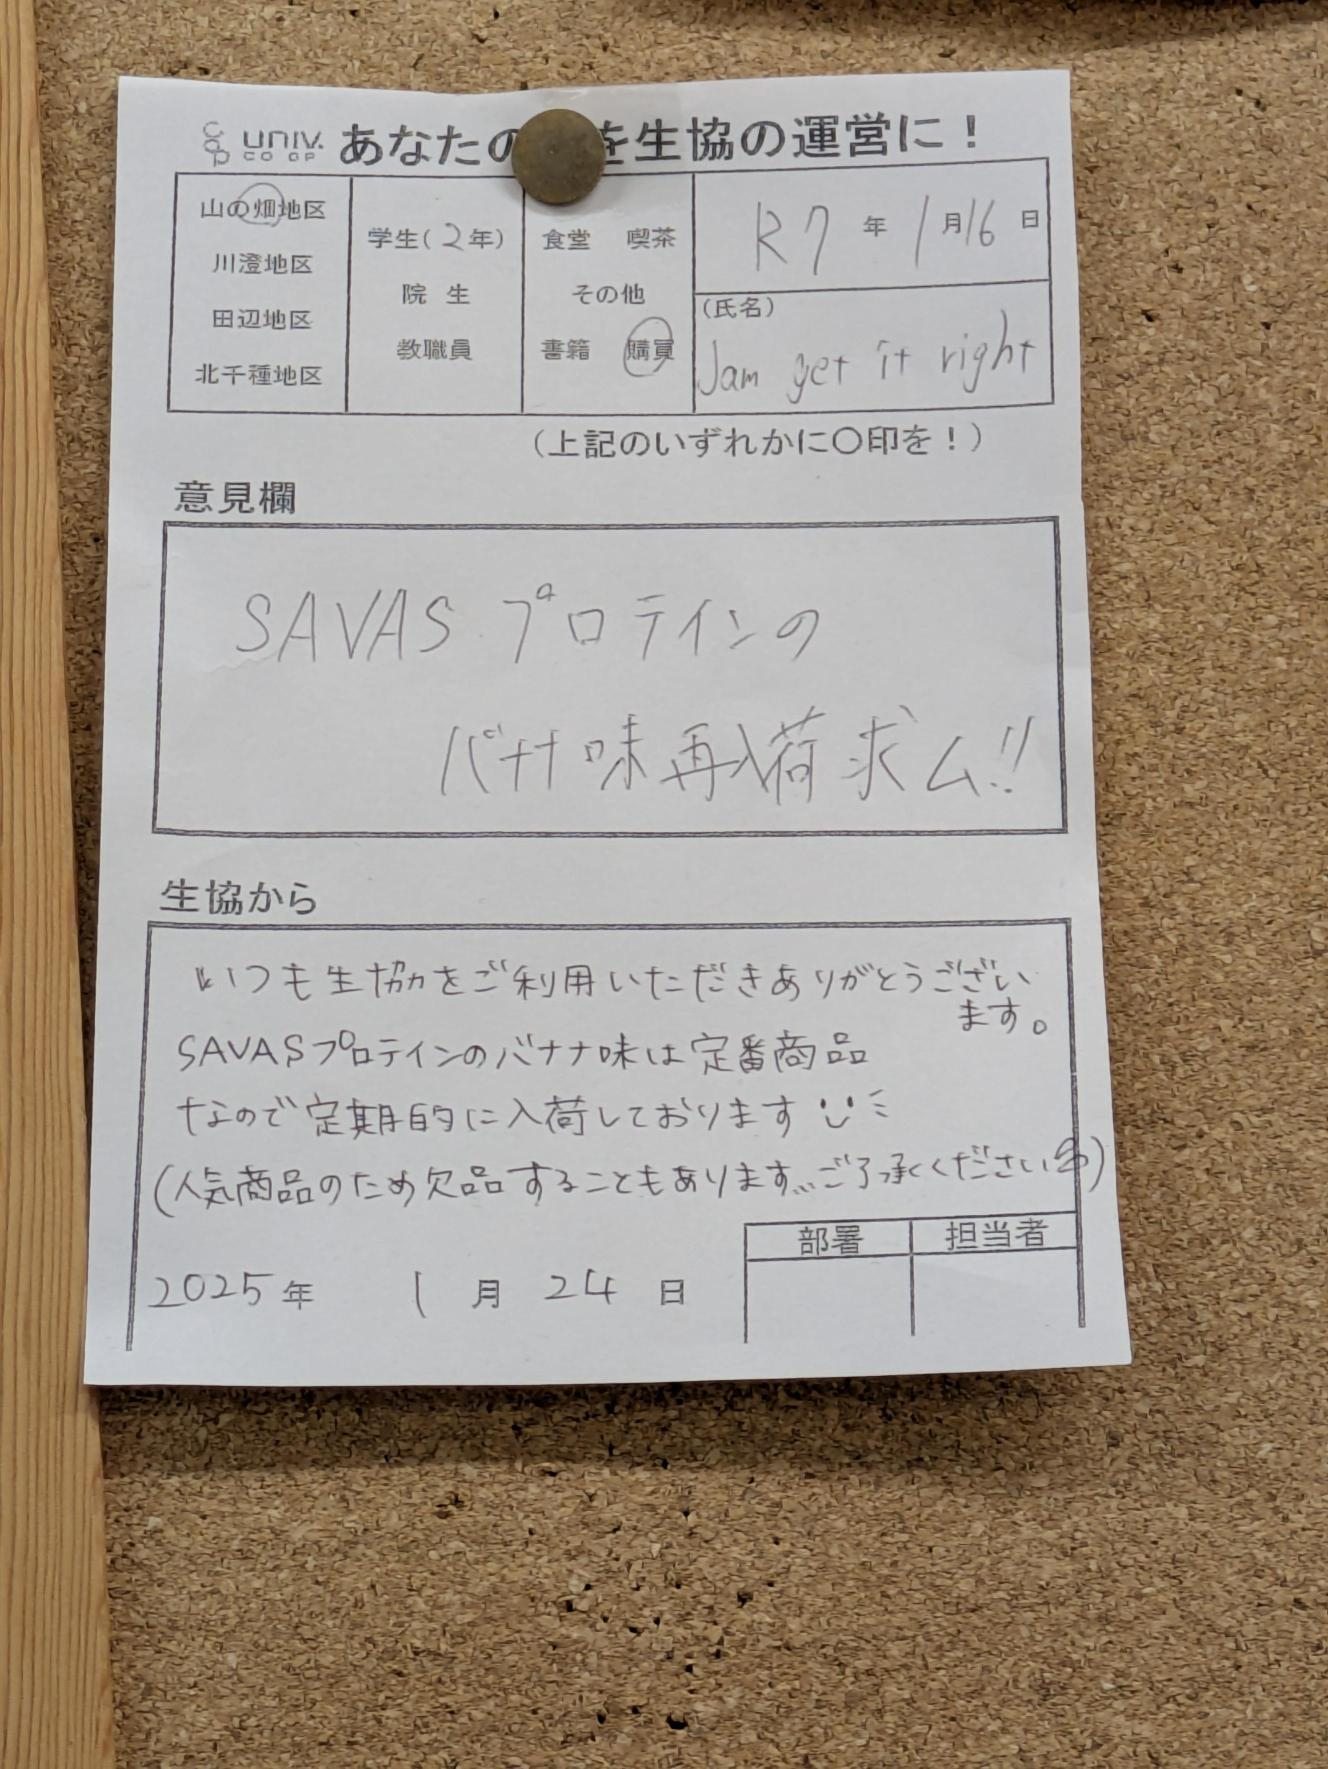 univ. CO-OP あなたの を生協の運営に！
山の畑地区
川澄地区
田辺地区
北千種地区
学生(2年)
院 生
教職員
食堂 喫茶
その他
書籍 購買
R7 年 1 月 16 日
(氏名)
Jam get it right
(上記のいずれかに〇印を！)
意見欄
SAVAS プロテインの
バナナ味再入荷求ム!!
生協から
いつも生協をご利用いただきありがとうござい
ます。
SAVASプロテインのバナナ味は定番商品
なので定期的に入荷しております
(人気商品のため欠品することもあります… ご了承ください)
部署 担当者
2025 年 1 月 24 日